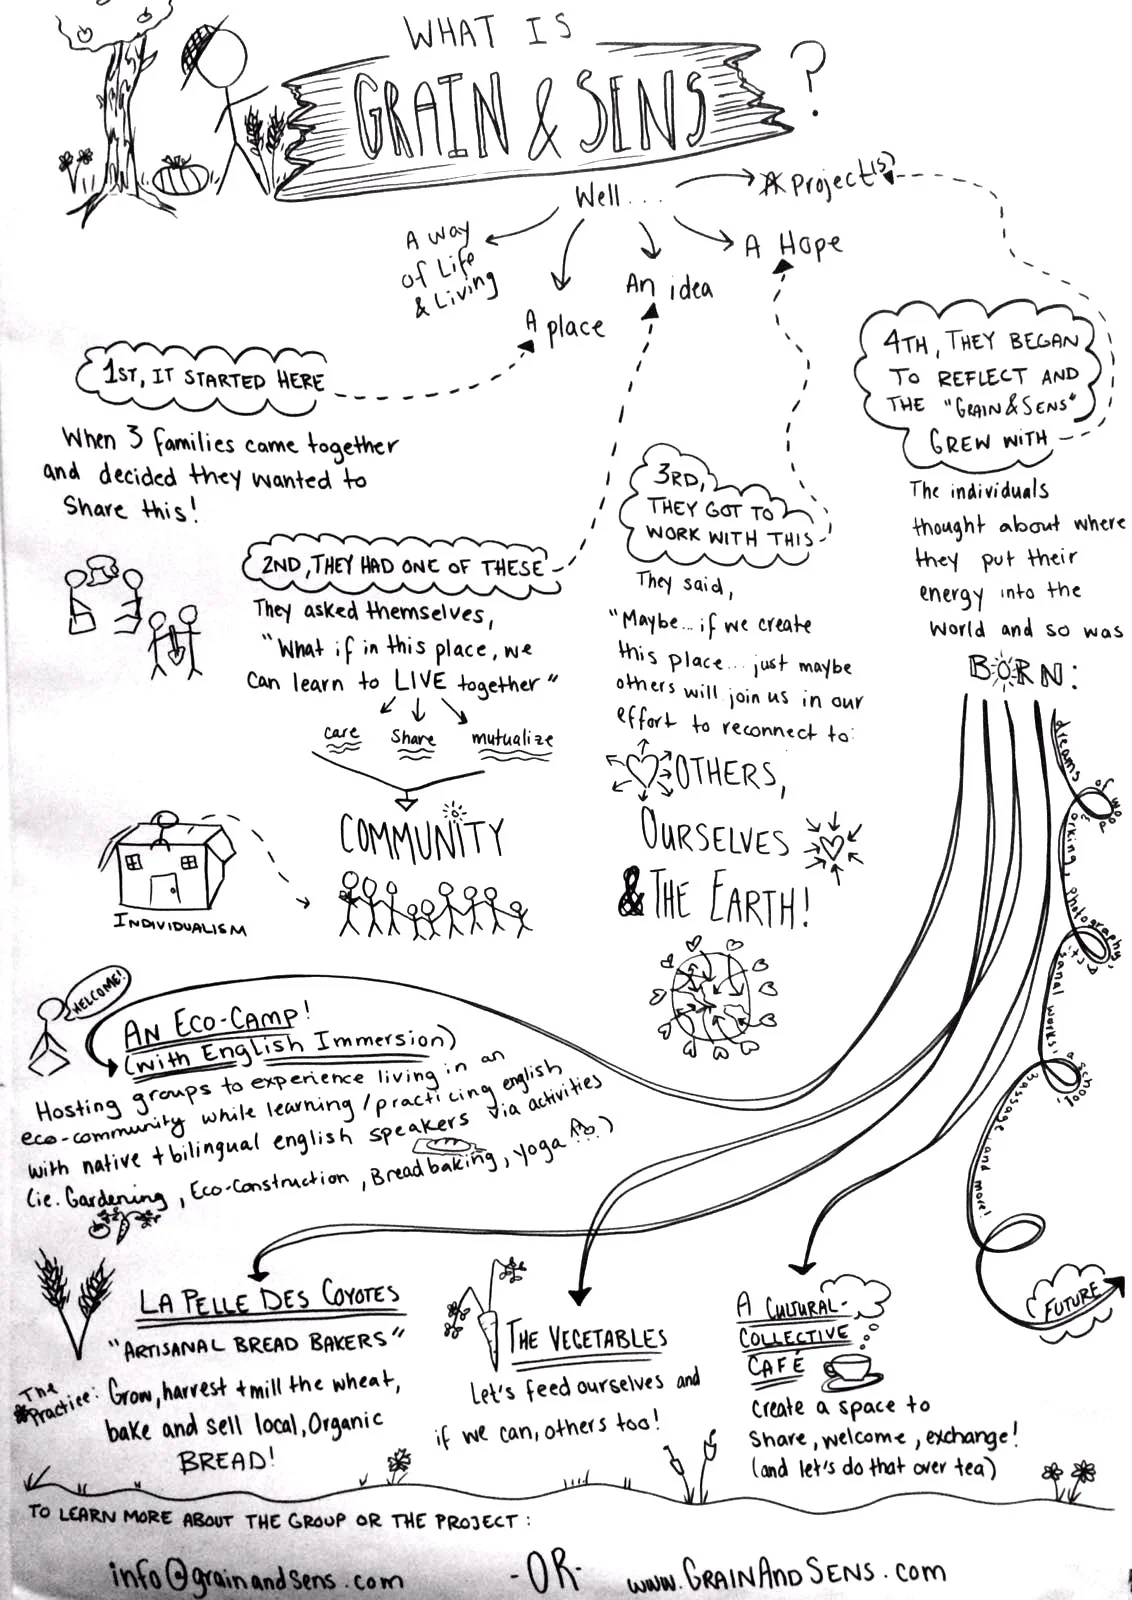 WHAT IS
GRAIN & SENS ?
Well...
A Project(s)
A Hope
An idea
A place
A way
of Life
& Living
1ST, IT STARTED HERE
When 3 families came together
and decided they wanted to
Share this!
2ND, THEY HAD ONE OF THESE
They asked themselves,
"What if in this place, we
can learn to LIVE together"
care share mutualize
COMMUNITY
INDIVIDUALISM
3RD,
THEY GOT TO
WORK WITH THIS
They said,
"Maybe... if we create
this place... just maybe
others will join us in our
effort to reconnect to:
OTHERS,
OURSELVES
& THE EARTH!
4TH, THEY BEGAN
TO REFLECT AND
THE "GRAIN&SENS"
GREW WITH
The individuals
thought about where
they put their
energy into the
world and so was
BORN:
dreams of wood working, photography, artisanal works, a school, massage, and more!
FUTURE
WELCOME!
AN ECO-CAMP!
(with English Immersion)
Hosting groups to experience living in an
eco-community while learning/practicing english
with native + bilingual english speakers via activities
(ie. Gardening, Eco-Construction, Bread baking, yoga)
LA PELLE DES COYOTES
"ARTISANAL BREAD BAKERS"
The Practice: Grow, harvest + mill the wheat,
bake and sell local, Organic
BREAD!
THE VEGETABLES
Let's feed ourselves and
if we can, others too!
A CULTURAL-
COLLECTIVE
CAFÉ
create a space to
share, welcome, exchange!
(and let's do that over tea)
TO LEARN MORE ABOUT THE GROUP OR THE PROJECT:
info@grainandsens.com -OR- www.GRAINANDSENS.com